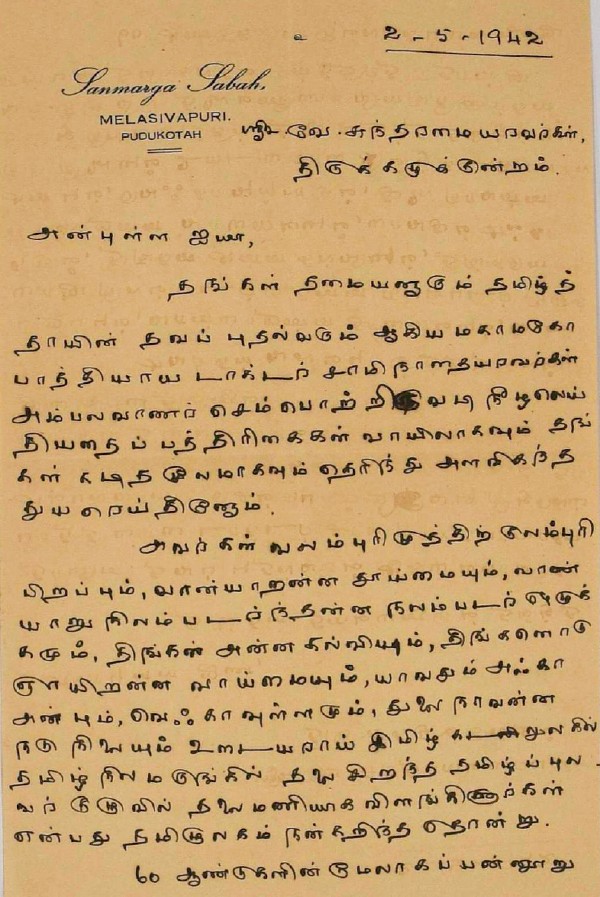 உ
2-5-1942
Sanmarga Sabah,
MELASIVAPURI.
PUDUKOTAH
ஸ்ரீ வே. சுந்தரமையரவர்கள்,
திருக்கழுக்குன்றம்.
அன்புள்ள ஐயா,
தங்கள் தமையனாரும் தமிழ்த்
தாயின் தவப் புதல்வரும் ஆகிய மகாமகோ
பாத்தியாய டாக்டர் சாமிநாதையரவர்கள்
அம்பலவாணர் செம்பொற்றிருவடி நீழலெய்
தியதைப் பத்திரிகைகள் வாயிலாகவும் தங்
கள் கடித மூலமாகவும் தெரிந்து அளவிகந்த
துயரெய்தினோம்.
அவர்கள் வலம்புரிமுத்திற் குலம்புரி
பிறப்பும், வான்யாறன்ன தூய்மையும், வான்
யாறு நிலம்படர்ந்தன்ன நலம்படர் ஒழுக்
கமும், திங்கள் அன்ன கல்வியும், திங்களொடு
ஞாயிறன்ன வாய்மையும், யாவதும் அஃகா
அன்பும், வெஃகாவுள்ளமும், துலைநாவன்ன
நடுநிலையும் உடையராய் இமிழ்கடலுலகில்
தமிழ் நிலமருங்கில் தலைசிறந்த தமிழ்ப்புல
வர் குழுவில் தலைமணியாக விளங்கினார்கள்
என்பது தமிழுலகம் நன்கறிந்ததொன்று.
60 ஆண்டுகளின் மேலாகப் பன்னூறு